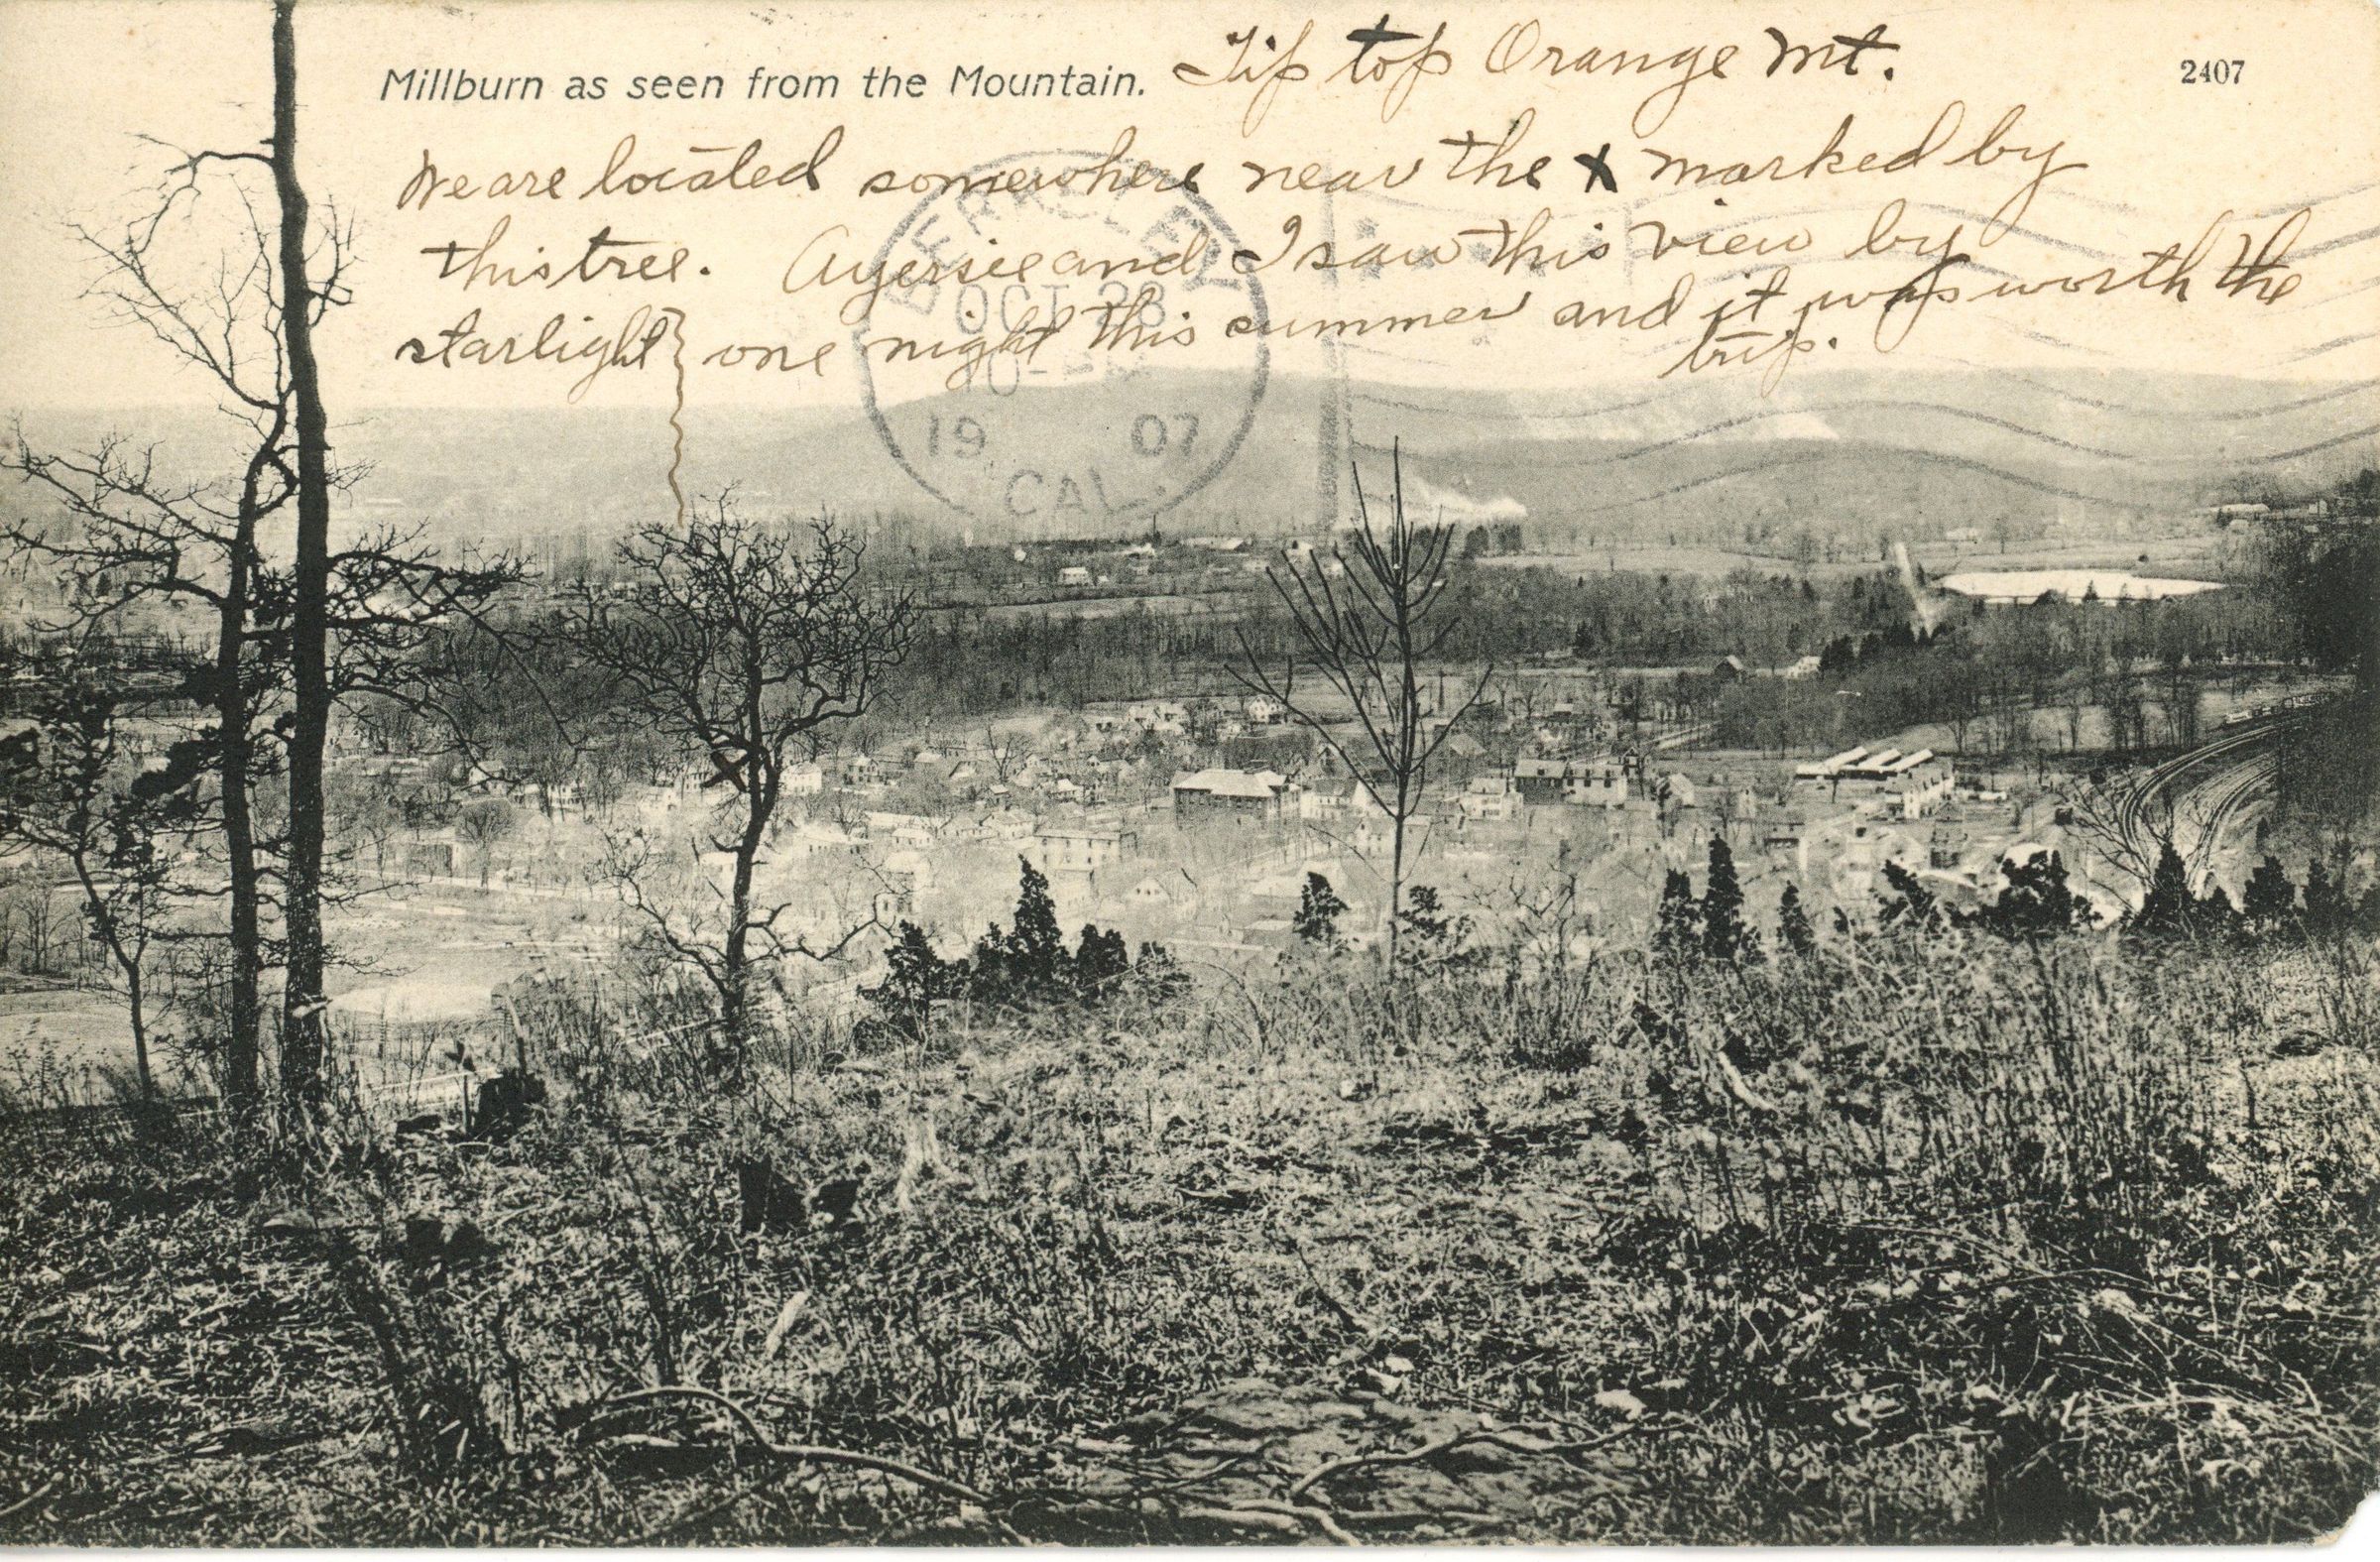 Millburn as seen from the Mountain. Tip top Orange Mt.
2407
We are located somewhere near the X marked by
this tree. Ayersie and I saw this view by
starlight} one night this summer and it was worth the
trip.
BERKELEY
OCT 28
19 07
CAL.